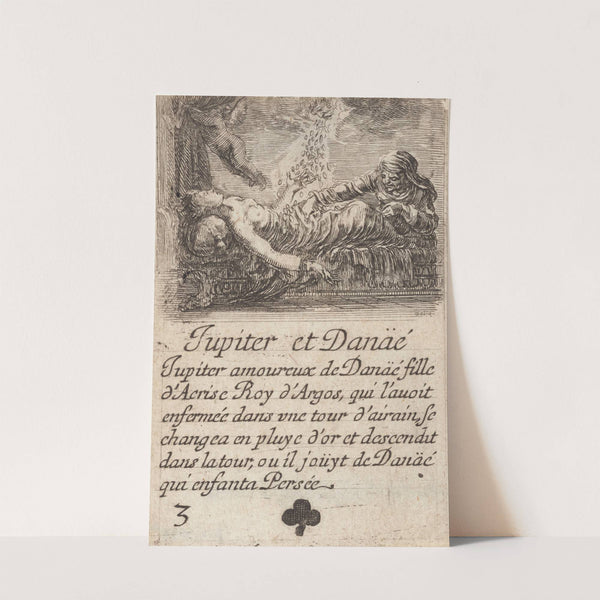 Iupiter et Danäé
Iupiter amoureux de Danäé fille
d'Acrise Roy d'Argos, qui l'auoit
enfermée dans vne tour d'airain, se
changea en pluye d'or et descendit
dans la tour, ou il joüyt de Danäé
qui enfanta Persée
3